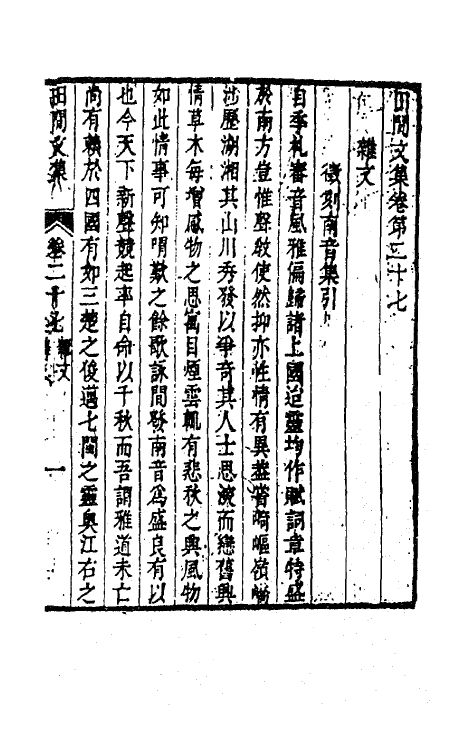 田間文集卷第二十七
雜文
徵刻南音集引
自季札審音風雅偏歸諸上國迨靈均作賦詞章特盛
於南方豈惟聲教使然抑亦性情有異蓋嘗崎嶇嶺嶠
涉歷湖湘其山川秀發以爭奇其人士思深而戀舊興
情草木每增感物之思寓目煙雲輒有悲秋之興風物
如此情事可知喟歎之餘歌詠間發南音為盛良有以
也今天下新聲競起率自命以千秋而吾謂雅道未亡
尚有賴於四國有如三楚之俊邁七閩之靈奧江右之
田間文集 卷二十七 雜文 一